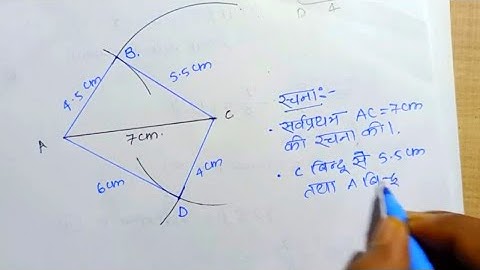 B.
4.5cm
5.5cm
C
A
7cm.
6cm
4cm
D
रचना:-
• सर्वप्रथम AC=7cm
की रचना की।
• C बिन्दू से 5.5cm
तथा A बिन्दू